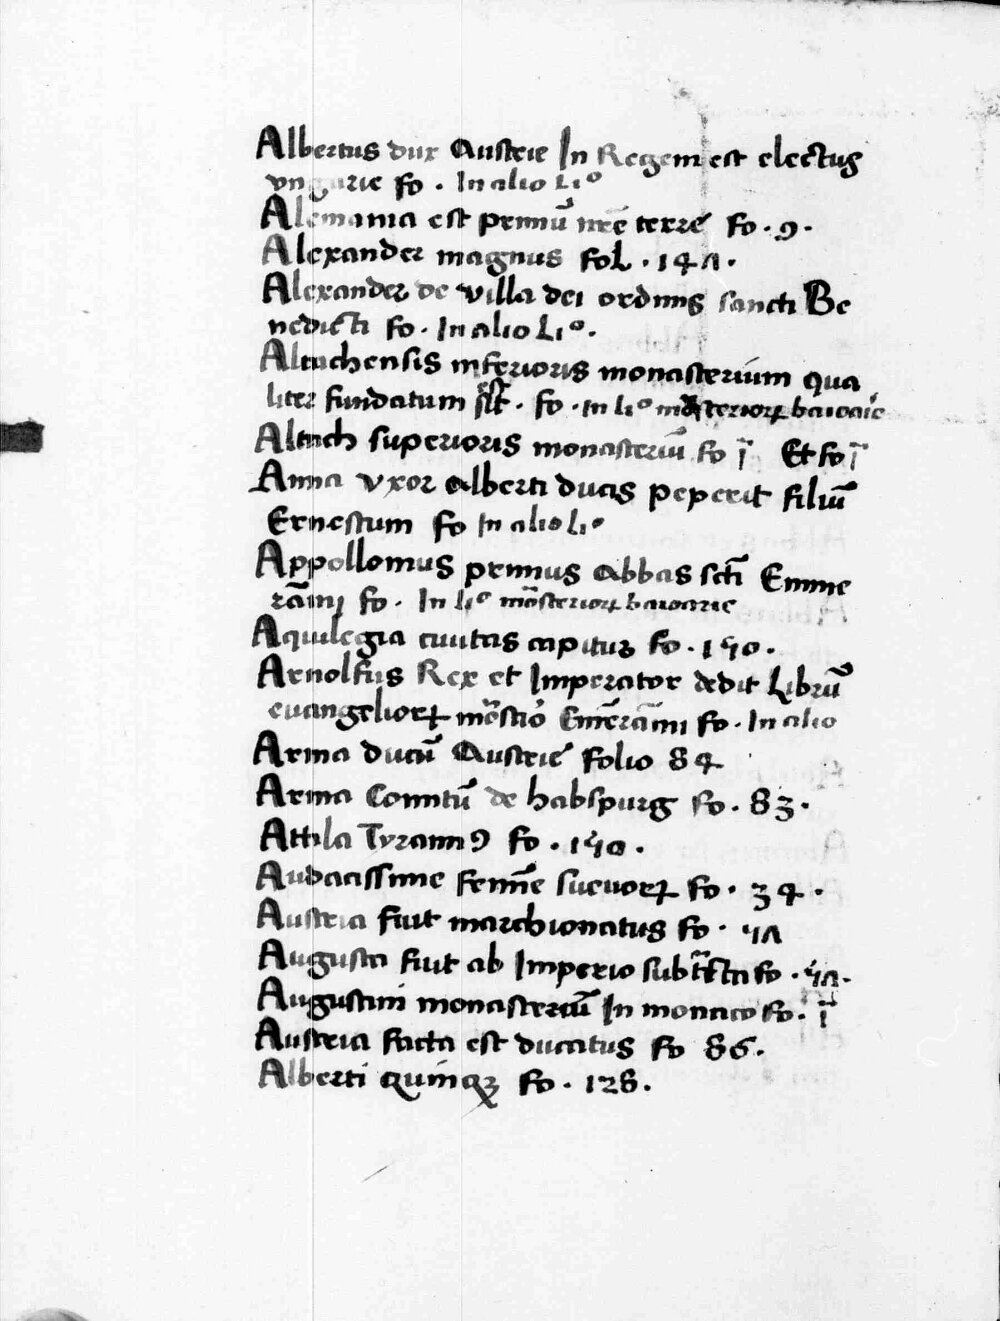 Albertus dux Austrie In Regem est electus
vngarie fo . In alio Lio
Alemania est primū nr̄e terre fo . 9 .
Alexander magnus fol . 141 .
Alexander de villa dei ordinis sancti Be
nedicti fo . In alio Lio .
Altachensis inferioris monasterium qua
liter fundatum fo . In lio baioarie
Altach superioris monasteriū fo ī Et fo ī
Anna vxor Alberti ducis peperit filiū
Ernestum fo In alio lio
Appollonius primus Abbas sctī Emme
rāmi fo . In lio mōasteriorꝝ baioarie
Aquilegia ciuitas capitur fo . 150 .
Arnolfus Rex et Imperator dedit Librū
euangeliorꝝ Emērāmi fo . In alio
Arma ducū Austrie folio 84
Arma Comitū de habspurg fo . 83 .
Attila Tyrann9 fo . 150 .
Audacissime femīe sueuorꝝ fo . 34 .
Austria fuit marchionatus fo . 51
Augusta fuit ab Imperio subtᵃcta fo . 51 .
Augustini monasteriū In monaco fo . ī
Austria facta est ducatus fo 86 .
Alberti quinqꝫ fo . 128 .